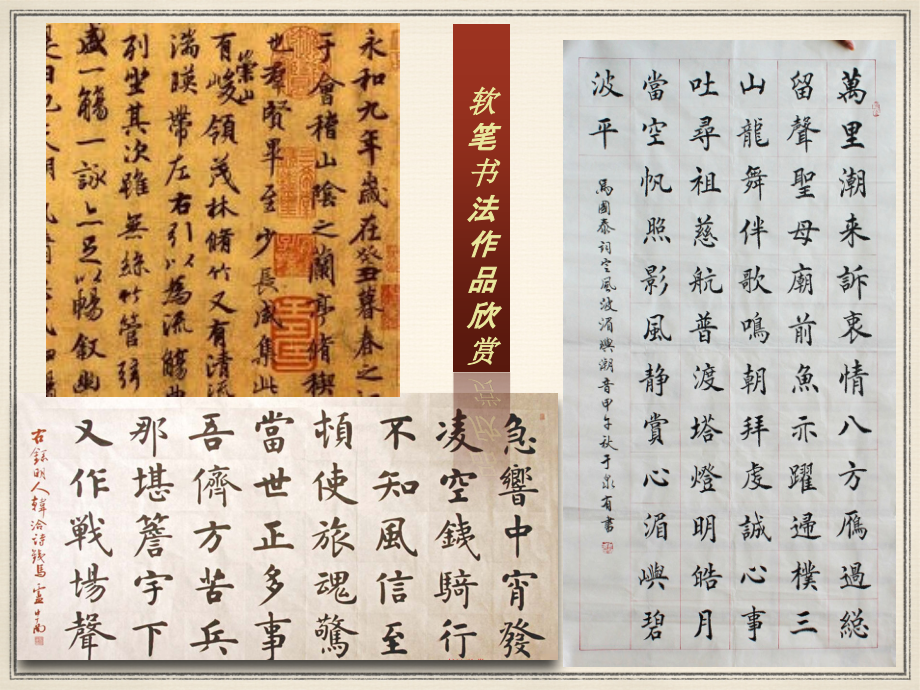 永和九年歲在癸丑暮春之
于會稽山陰之蘭亭脩稧
也羣賢畢至少長咸集此
有崇山峻領茂林脩竹又有清流
湍暎帶左右引以為流觴曲
列坐其次雖無絲竹管弦
盛一觴一詠亦足以暢叙幽
是日也天朗氣
软笔书法作品欣赏
萬里潮来訴衷情八方雁過総
留聲聖母廟前魚示躍歸樸三
山龍舞伴歌鳴朝拜虔誠心事
吐尋祖慈航普渡塔燈明皓月
當空帆照影風静賞心湄嶼碧
波平
馬國泰詞定風波湄嶼潮音甲午秋于泉有書
急響中宵發
凌空銕騎行
不知風信至
頓使旅魂驚
當世正多事
吾儕方苦兵
那堪簷宇下
又作戰場聲
右錄明人韓洽詩銕馬